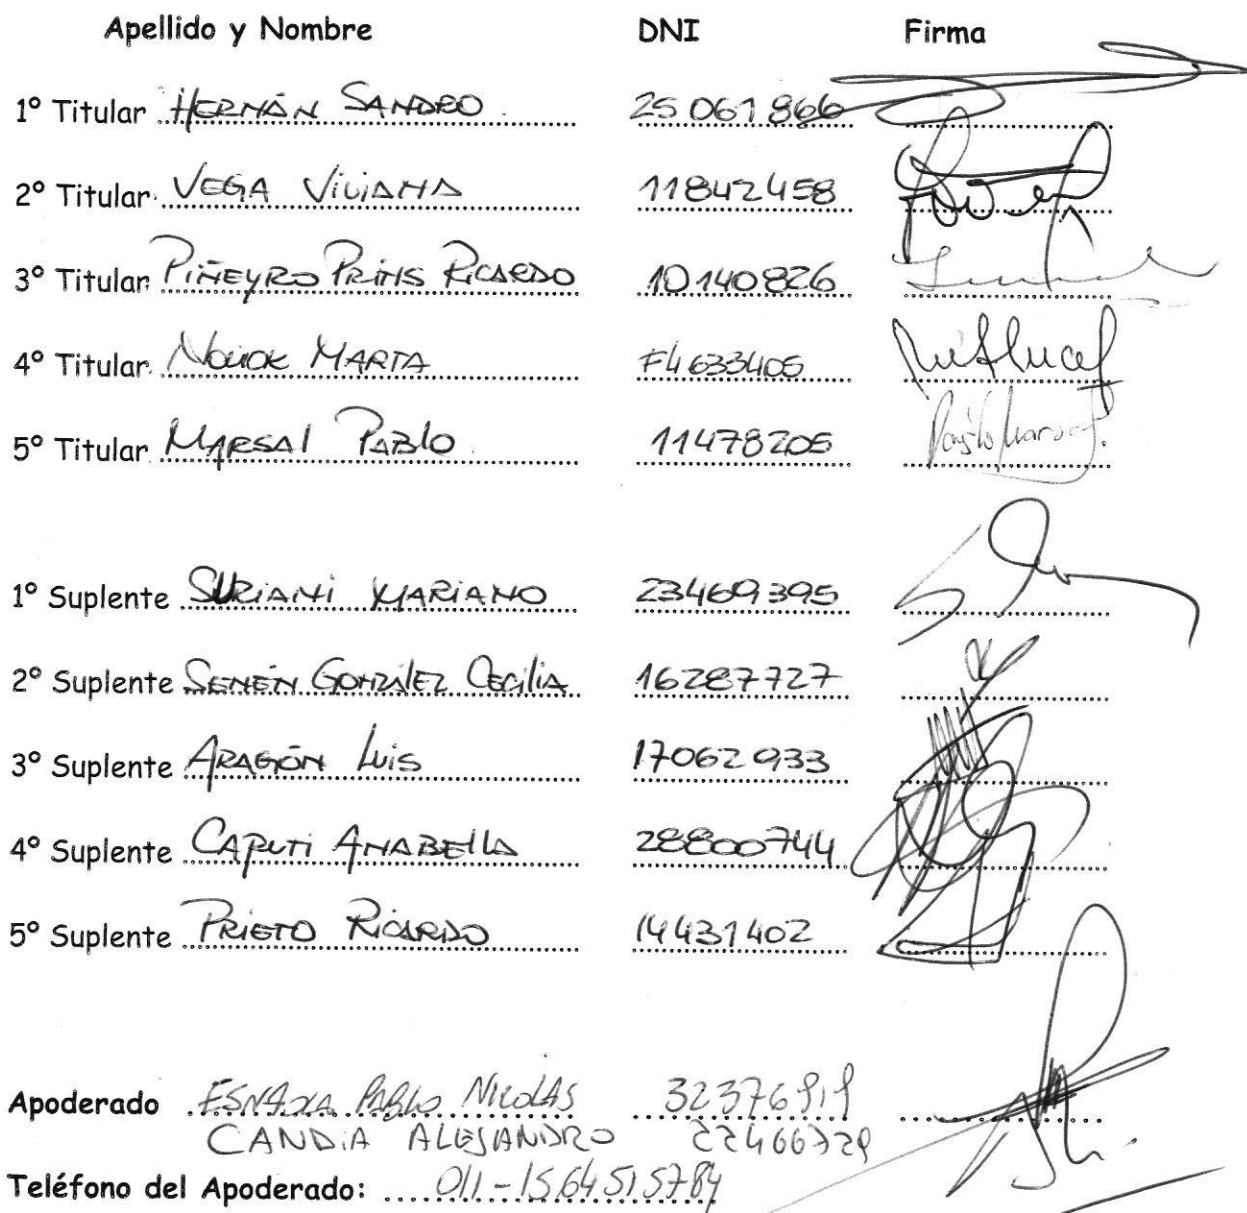 Apellido y Nombre DNI Firma
1º Titular HERNÁN SANDRO 25 061 866
2º Titular VEGA VIVIANA 11842458
3º Titular PIÑEYRO PRINS RICARDO 10140826
4º Titular NOVICK MARTA F4633405
5º Titular MARSAL PABLO 11478205 Pablo Marsal
1º Suplente SURIANI MARIANO 23469395
2º Suplente SENÉN GONZÁLEZ CECILIA 16287727
3º Suplente ARAGÓN LUIS 17062933
4º Suplente CAPUTI ANABELLA 28800744
5º Suplente PRIETO RICARDO 14431402
Apoderado PABLO NICOLAS
CANDIA ALEJANDRO 22466729
Teléfono del Apoderado: 011-1564515784